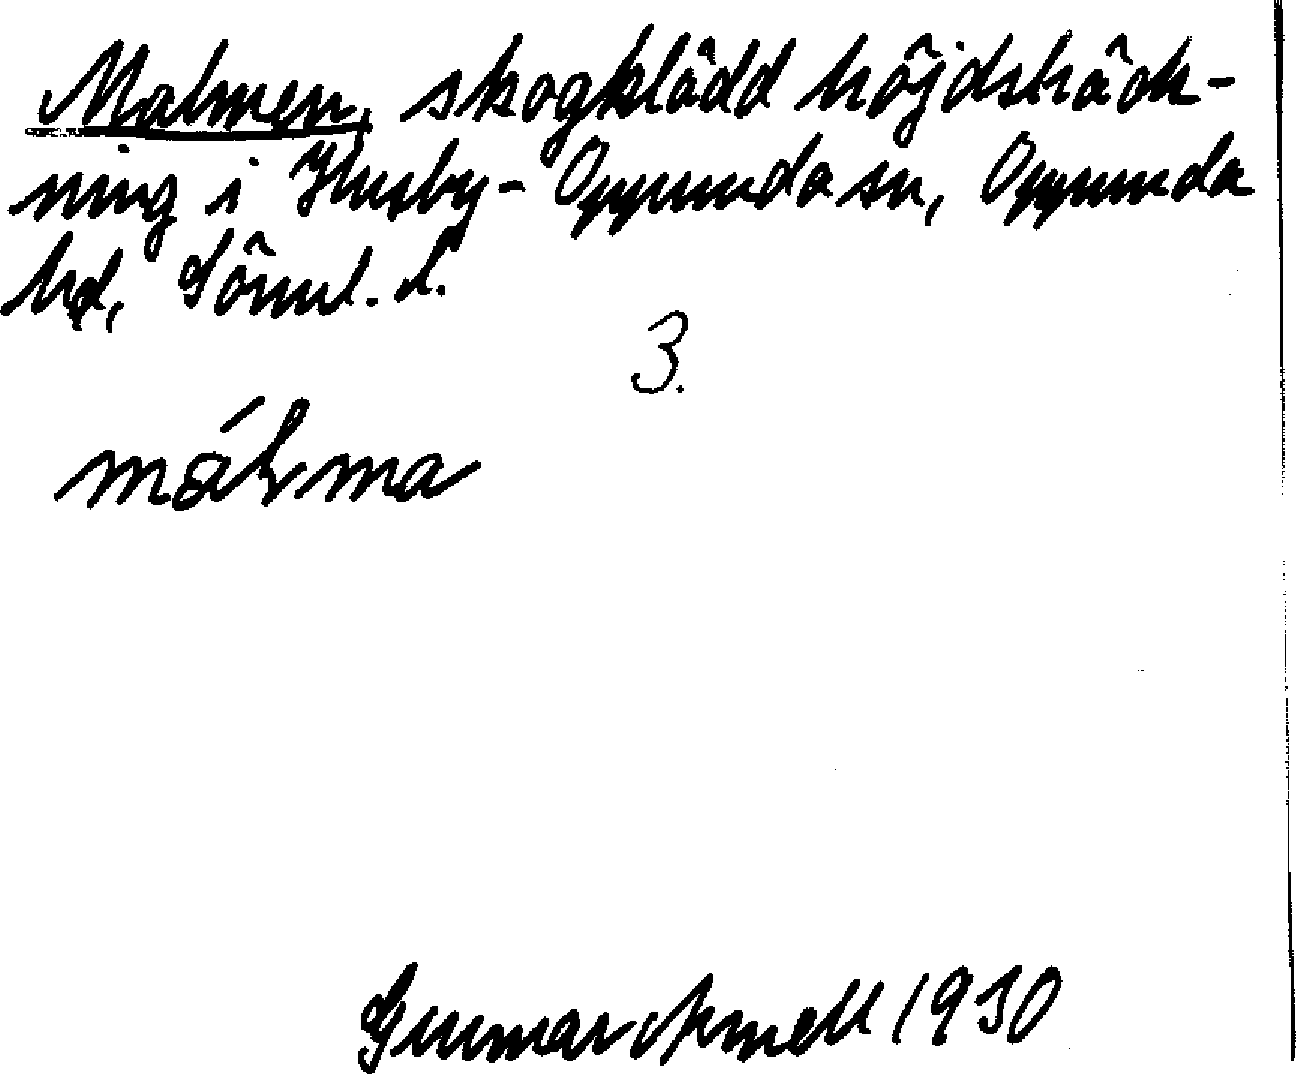 Malmen, skogklädd höjdsträck-
ning i Husby-Oppunda sn, Oppunda
hd, Sörml. l.
3.
málma
Gunnar Arnell 1930